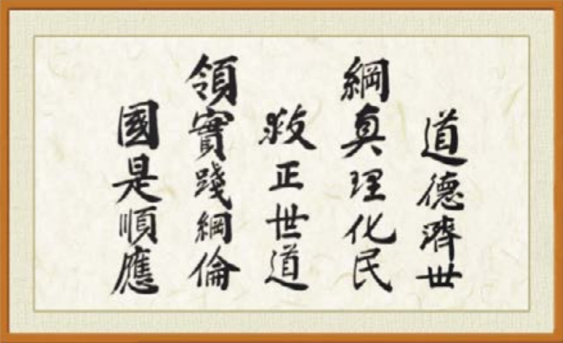 道德濟世
綱真理化民
救正世道
領實踐綱倫
國是順應